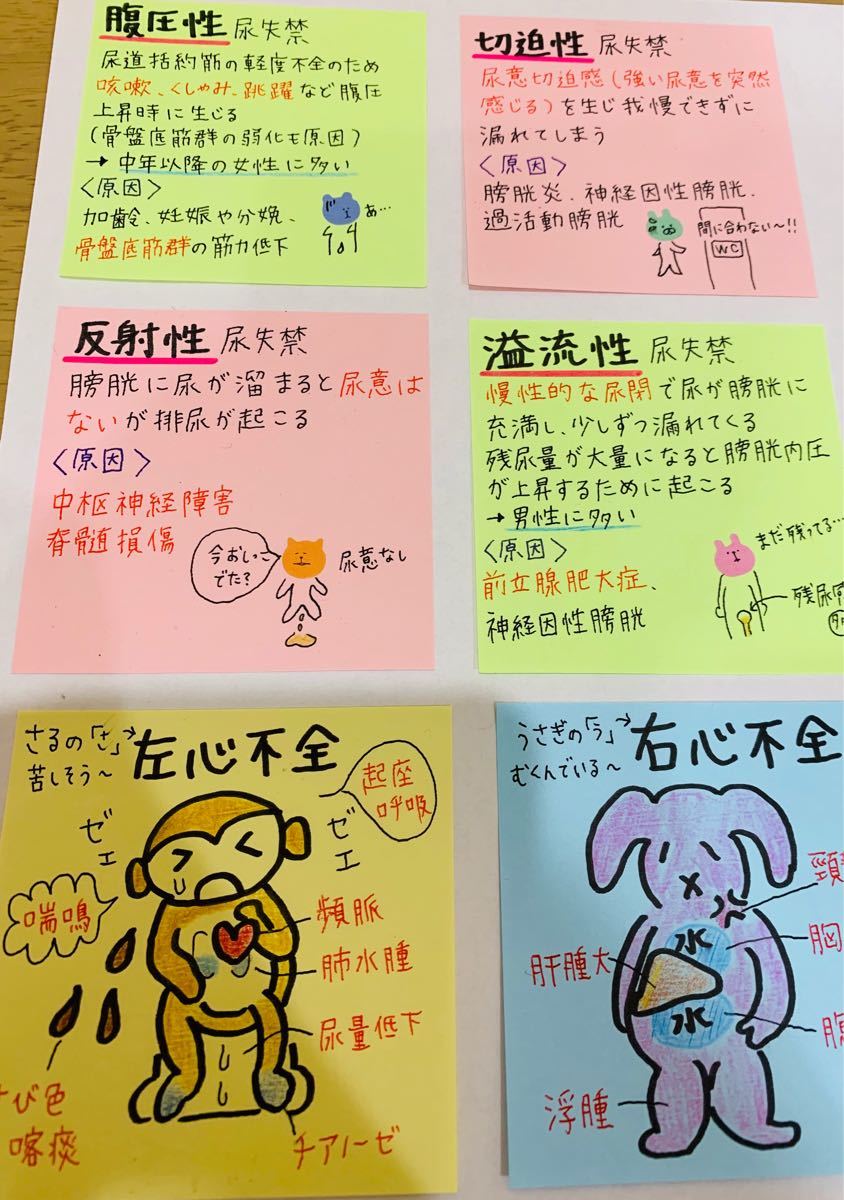 腹圧性 尿失禁
尿道括約筋の軽度不全のため
咳嗽、くしゃみ、跳躍など腹圧
上昇時に生じる
(骨盤底筋群の弱化も原因)
→中年以降の女性に多い
<原因>
加齢、妊娠や分娩、
骨盤底筋群の筋力低下
あ…
切迫性 尿失禁
尿意切迫感(強い尿意を突然
感じる)を生じ我慢できずに
漏れてしまう
<原因>
膀胱炎、神経因性膀胱、
過活動膀胱
間に合わない〜!!
WC
反射性 尿失禁
膀胱に尿が溜まると尿意は
ないが排尿が起こる
<原因>
中枢神経障害
脊髄損傷
今おしっこ
でた?
尿意なし
溢流性 尿失禁
慢性的な尿閉で尿が膀胱に
充満し、少しずつ漏れてくる
残尿量が大量になると膀胱内圧
が上昇するために起こる
→男性に多い
<原因>
前立腺肥大症、
神経因性膀胱
まだ残ってる…
残尿
さるの「さ」→
苦しそう〜
左心不全
起座
呼吸
ゼェ
ゼェ
喘鳴
頻脈
肺水腫
尿量低下
チアノーゼ
び色
喀痰
うさぎの「う」→
むくんでいる〜
右心不全
頸
胸
水
肝腫大
水
腹
浮腫